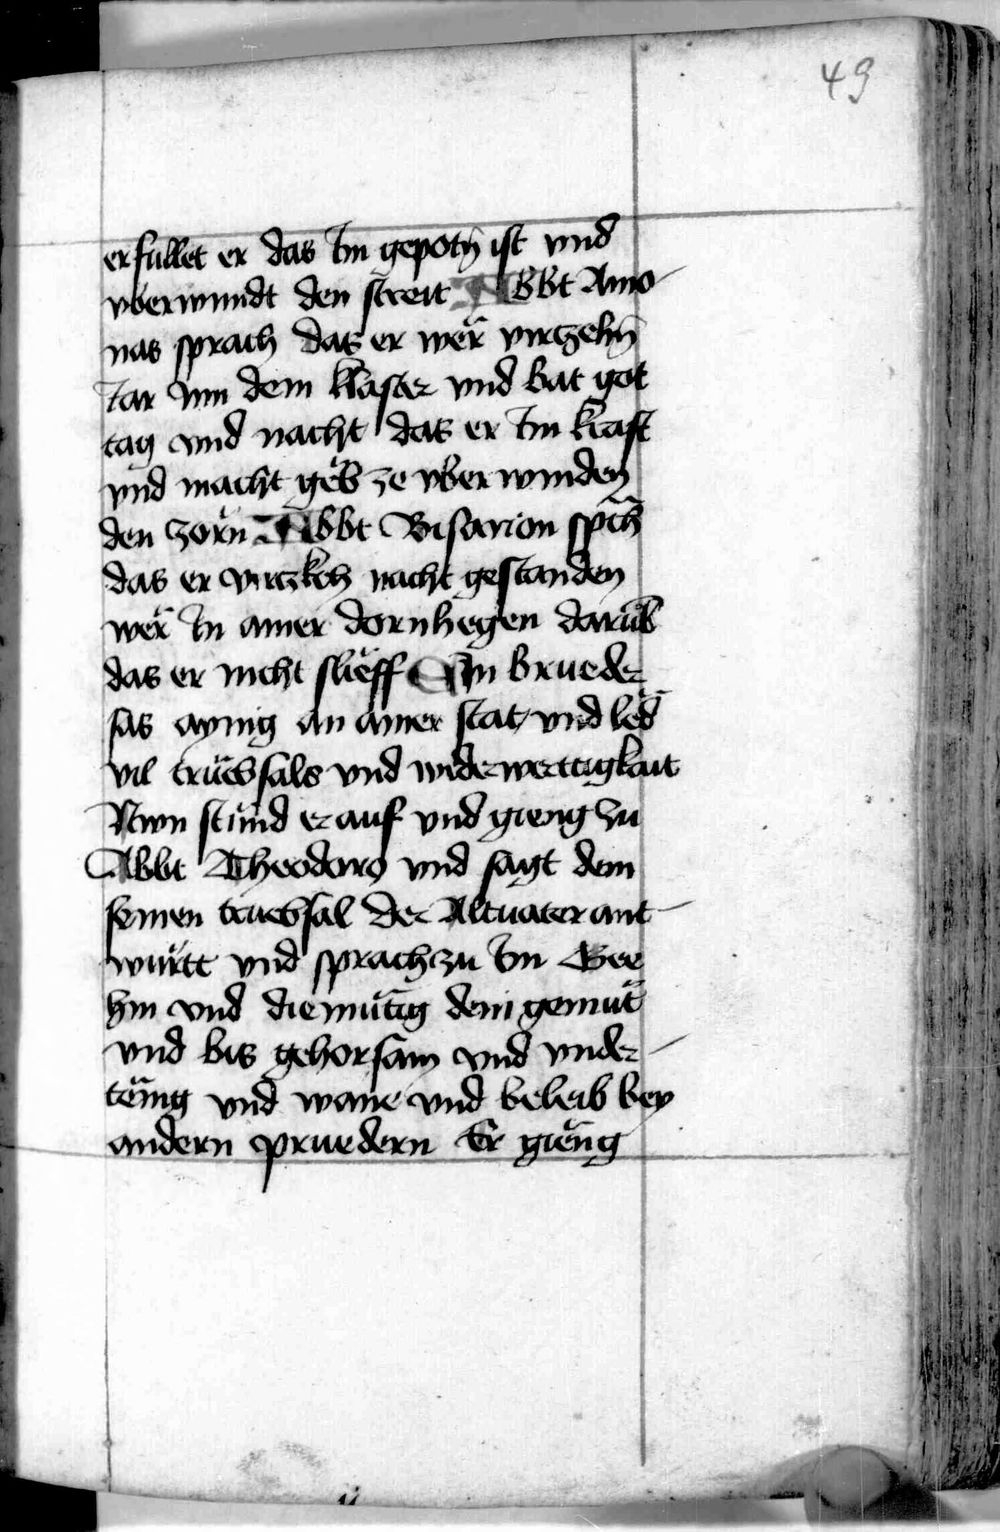 49
erfullet er das Im gepotn̄ ist vnd
vberwindt den streit Abbt Amo-
nas sprach das er wer̈ virczehn̄
Iar Inn dem kloster vnd bat got
tag vnd nacht das er Im kraft
vnd macht gëb ze vber winden
den zorn Abbt Bisarion spc̄h
das er virczkch nacht gestanden
wer̈ In ainer dornhegen darüb
das er nicht slieff Ein brueder
sas aynig an ainer stat vnd led
vil trüebsals vnd widerwerttigkait
Nwn stünd er auf vnd gieng zu
Abbt Theodoro vnd sagt dem
seinen truebsal Der Altuater ant-
wurtt vnd sprach zu Im Gee
hin vnd diemütig dein gemüt
vnd bis gehorsam vnd vnder-
tënig vnd wane vnd beleib bey
andern pruedern Er gieng